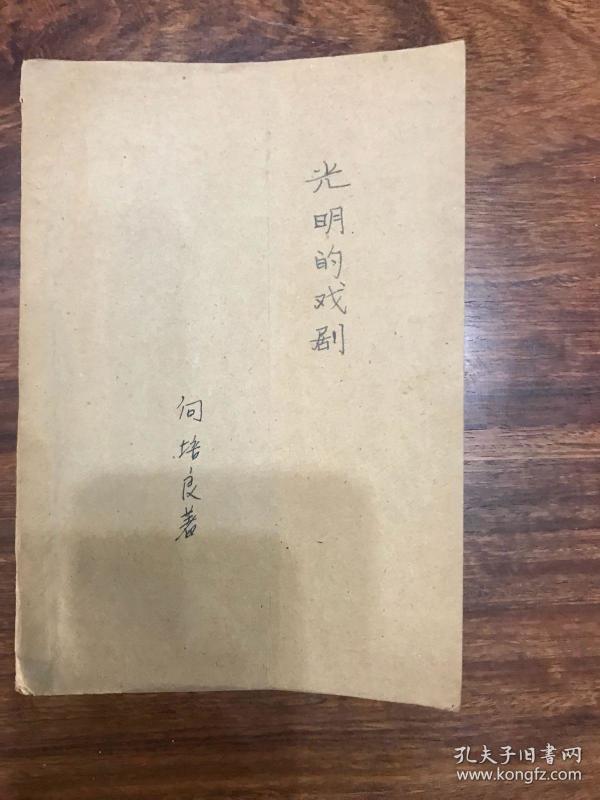 光明的戏剧
向培良著
孔夫子旧書网
www.kongfz.com